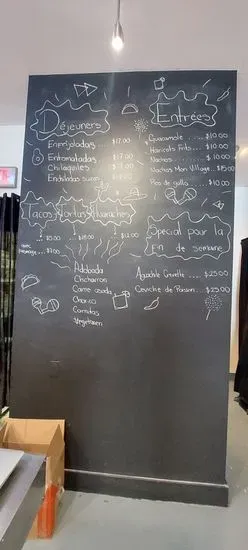 Déjeuners
Enfrijoladas .... $17.00
Entomatadas ... $17.00
Chilaquiles
Enchiladas suizas
Entrées
Guacamole ... $10.00
Haricots Frits ... $10.00
Nachos ... $10.00
Nachos Mon Village .. $15.00
Pico de gallo ... $10.00
Tacos Tortas Huaraches
$18.00 $12.00
Adobada
Chicharron
Carne asada
Chorizo
Carnitas
Végétarien
Spécial pour la
fin de semaine
Aguachile Crevette ... $25.00
Ceviche de Poisson ... $25.00